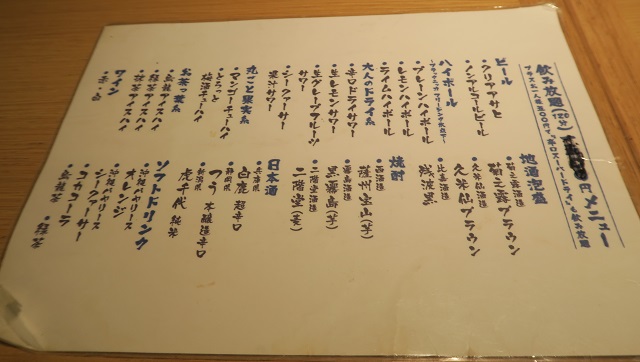 飲み放題(120分) 円 メニュー
プラスお一人様500円で、“辛口スーパードライ”も飲み放題
ビール
・クリアアサヒ
・ノンアルコールビール
ハイボール
〜ブラックニッカ フリージング仕立て〜
・プレーンハイボール
・レモンハイボール
・ライムハイボール
大人のドライ系
・辛口ドライサワー
・生レモンサワー
・生グレープフルーツサワー
・シークァーサー果汁サワー
丸ごと果実系
・マンゴーチューハイ
・とろっと梅酒チューハイ
お茶っ葉系
・烏龍アイスハイ
・緑茶アイスハイ
・抹茶アイスハイ
ワイン
・赤・白
地酒泡盛
・菊之露酒造
菊之露ブラウン
・久米仙酒造
久米仙ブラウン
・比嘉酒造
残波黒
焼酎
・西酒造
薩州宝山(芋)
・霧島酒造
黒霧島(芋)
・二階堂酒造
二階堂(麦)
日本酒
・兵庫県
白鹿 超辛口
・静岡県
つう 本醸造辛口
・新潟県
虎千代 純米
ソフトドリンク
・沖縄バヤリースオレンジ
・沖縄バヤリースシークァーサー
・コカコーラ
・烏龍茶 ・緑茶